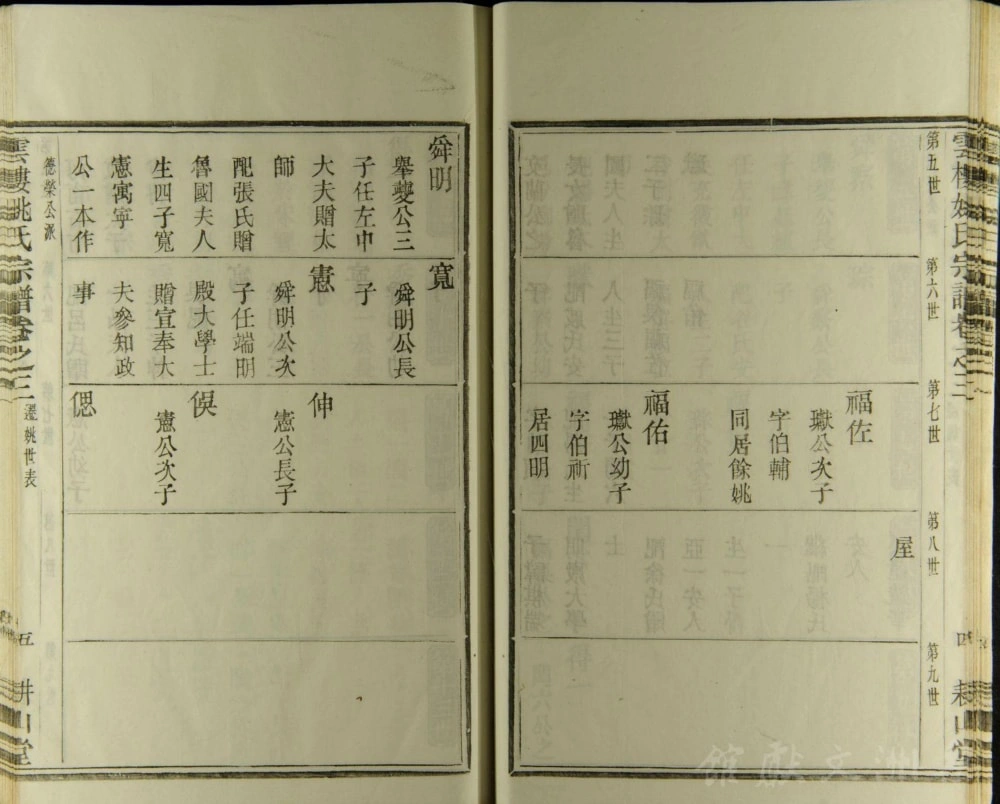 第五世
第六世
第七世
第八世
第九世
屋
福佐
獄公次子
字伯輔
同居餘姚
福佑
獄公幼子
字伯祈
居四明
舜明
舉夔公三
子任左中
大夫贈太
師
配張氏贈
魯國夫人
生四子寬
憲寓寧
公一本作
寬
舜明公長
子
憲
舜明公次
子任端明
殿大學士
贈宣奉大
夫參知政
事
伸
憲公長子
俁
憲公次子
偲
德榮公派
姚氏宗譜卷之三
遷姚世表
五